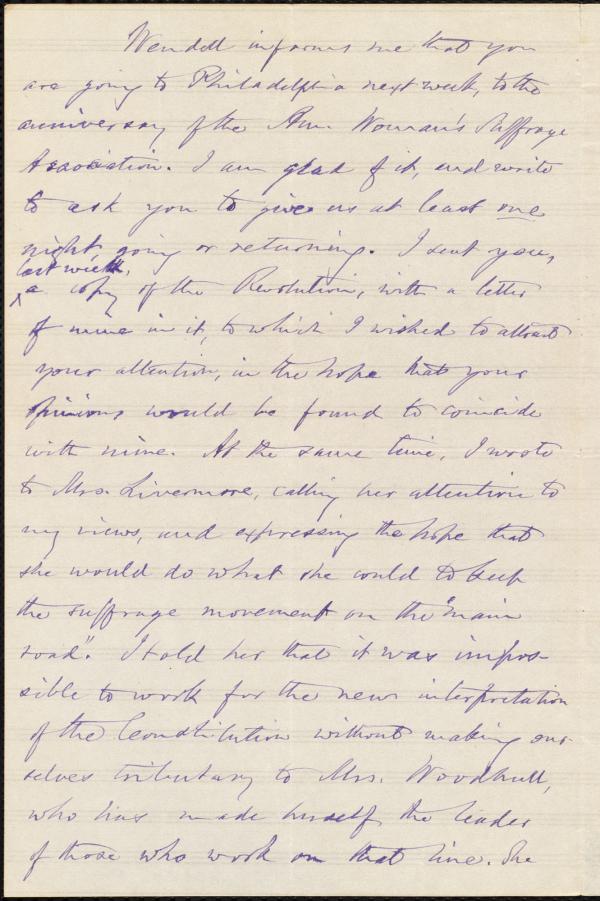 Wendell informs me that you
are going to Philadelphia next week, to the
anniversary of the Am. Woman's Suffrage
Association. I am glad of it, and write
to ask you to give us at least one
night, going or returning. I sent you,
last week,
^ a copy of the Revolution, with a letter
of mine in it, to which I wished to attract
your attention, in the hope that your
opinions would be found to coincide
with mine. At the same time, I wrote
to Mrs. Livermore, calling her attention to
my views, and expressing the hope that
she would do what she could to keep
the suffrage movement on the "main
road". I told her that it was impos-
sible to work for the new interpretation
of the Constitution without making our-
selves tributary to Mrs. Woodhull,
who has made herself the leader
of those who work on that line. She